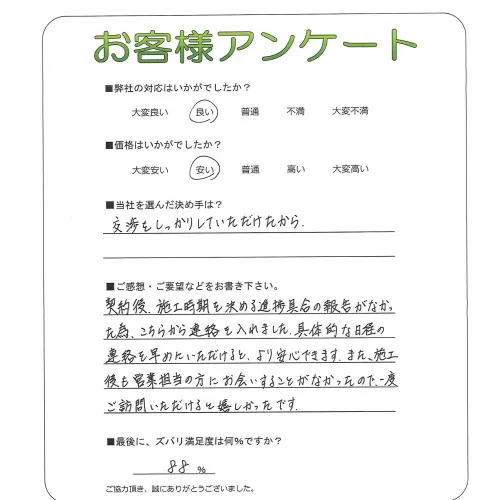 お客様アンケート
■弊社の対応はいかがでしたか?
大変良い 良い 普通 不満 大変不満
■価格はいかがでしたか?
大変安い 安い 普通 高い 大変高い
■当社を選んだ決め手は?
交渉をしっかりしていただけたから.
■ご感想・ご要望などをお書き下さい。
契約後、施工時期を決める進捗具合の報告がなかっ
た為、こちらから連絡を入れました.具体的な日程の
連絡を早めにいただけると、より安心できます.また、施工
後も営業担当の方にお会いすることがなかったので、一度
ご訪問いただけると嬉しかったです.
■最後に、ズバリ満足度は何%ですか?
88 %
ご協力頂き、誠にありがとうございました。